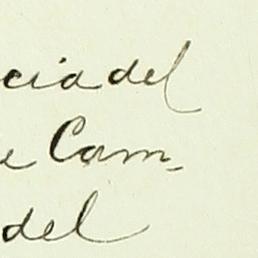 cia del
e Cam-
del